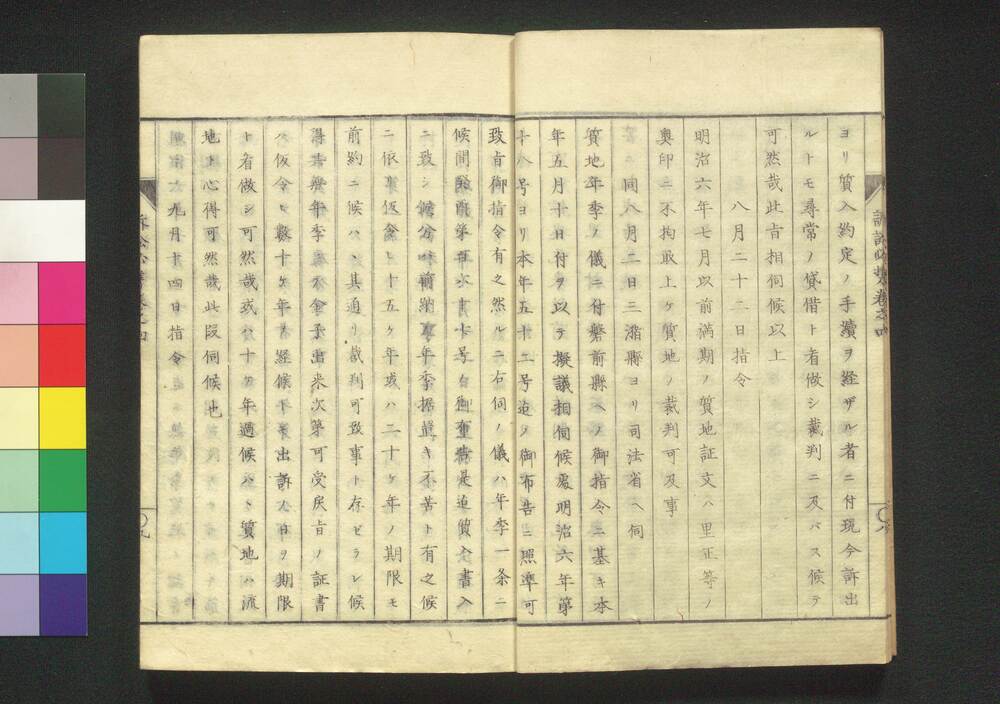 ヨリ質入約定ノ手續ヲ経ザル者ニ付現今訴出
ルトモ尋常ノ貸借ト者做シ裁判ニ及バス候テ
可然哉此旨相伺候以上
八月二十二日指令
明治六年七月以前満期ノ質地証文ハ里正等ノ
奥印ニ不拘取上ケ質地ノ裁判可及事
同八月二日三潴縣ヨリ司法省ヘ伺
質地年季ノ儀ニ付磐前縣ヘノ御指令ニ基キ本
年五月十日付ヲ以テ擬議相伺候處明治六年第
十八号ヨリ本年五十二号迠ヲ御布告ニ照準可
致旨御指令有之然ルニ右伺ノ儀ハ年季一条ニ
候間 号 御布告是迠質入書入
ニ致シ 前納 年季据置キ不苦ト有之候
ニ依 仮令ヒ十五ケ年或ハ二十ケ年ノ期限モ
前約ニ候ハヽ其通リ裁判可致事ト存ゼラレ候
得共無年季ニ金子出来次第可受戻旨ノ証書
ハ仮令ヒ数十ケ年ヲ経候トモ出訴ス日ヲ期限
ト看做シ可然哉或ハ十ケ年過候ハヽ質地ハ流
地ト心得可然哉此段伺候也
九月十四日指令